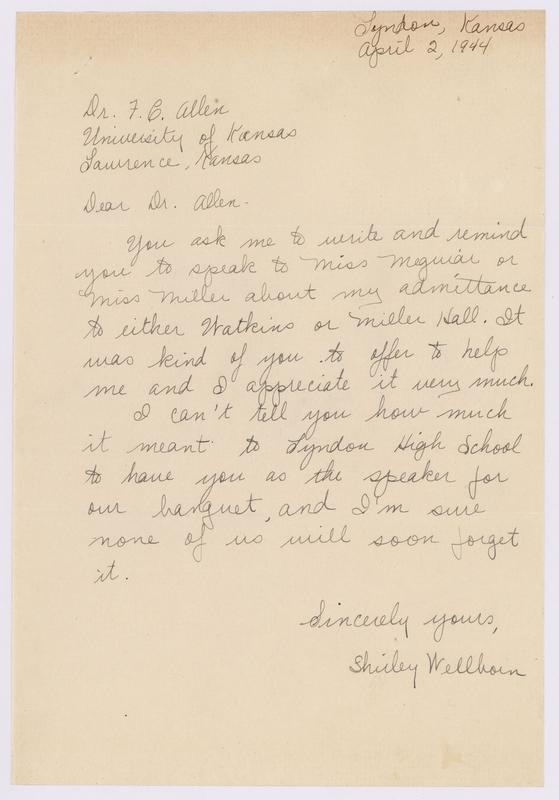 Lyndon, Kansas
April 2, 1944
Dr. F. C. Allen
University of Kansas
Lawrence, Kansas
Dear Dr. Allen -
You ask me to write and remind
you to speak to Miss Meguiar or
Miss Miller about my admittance
to either Watkins or Miller Hall. It
was kind of you to offer to help
me and I appreciate it very much.
I can't tell you how much
it meant to Lyndon High School
to have you as the speaker for
our banquet, and I'm sure
none of us will soon forget
it.
Sincerely yours,
Shirley Wellborn